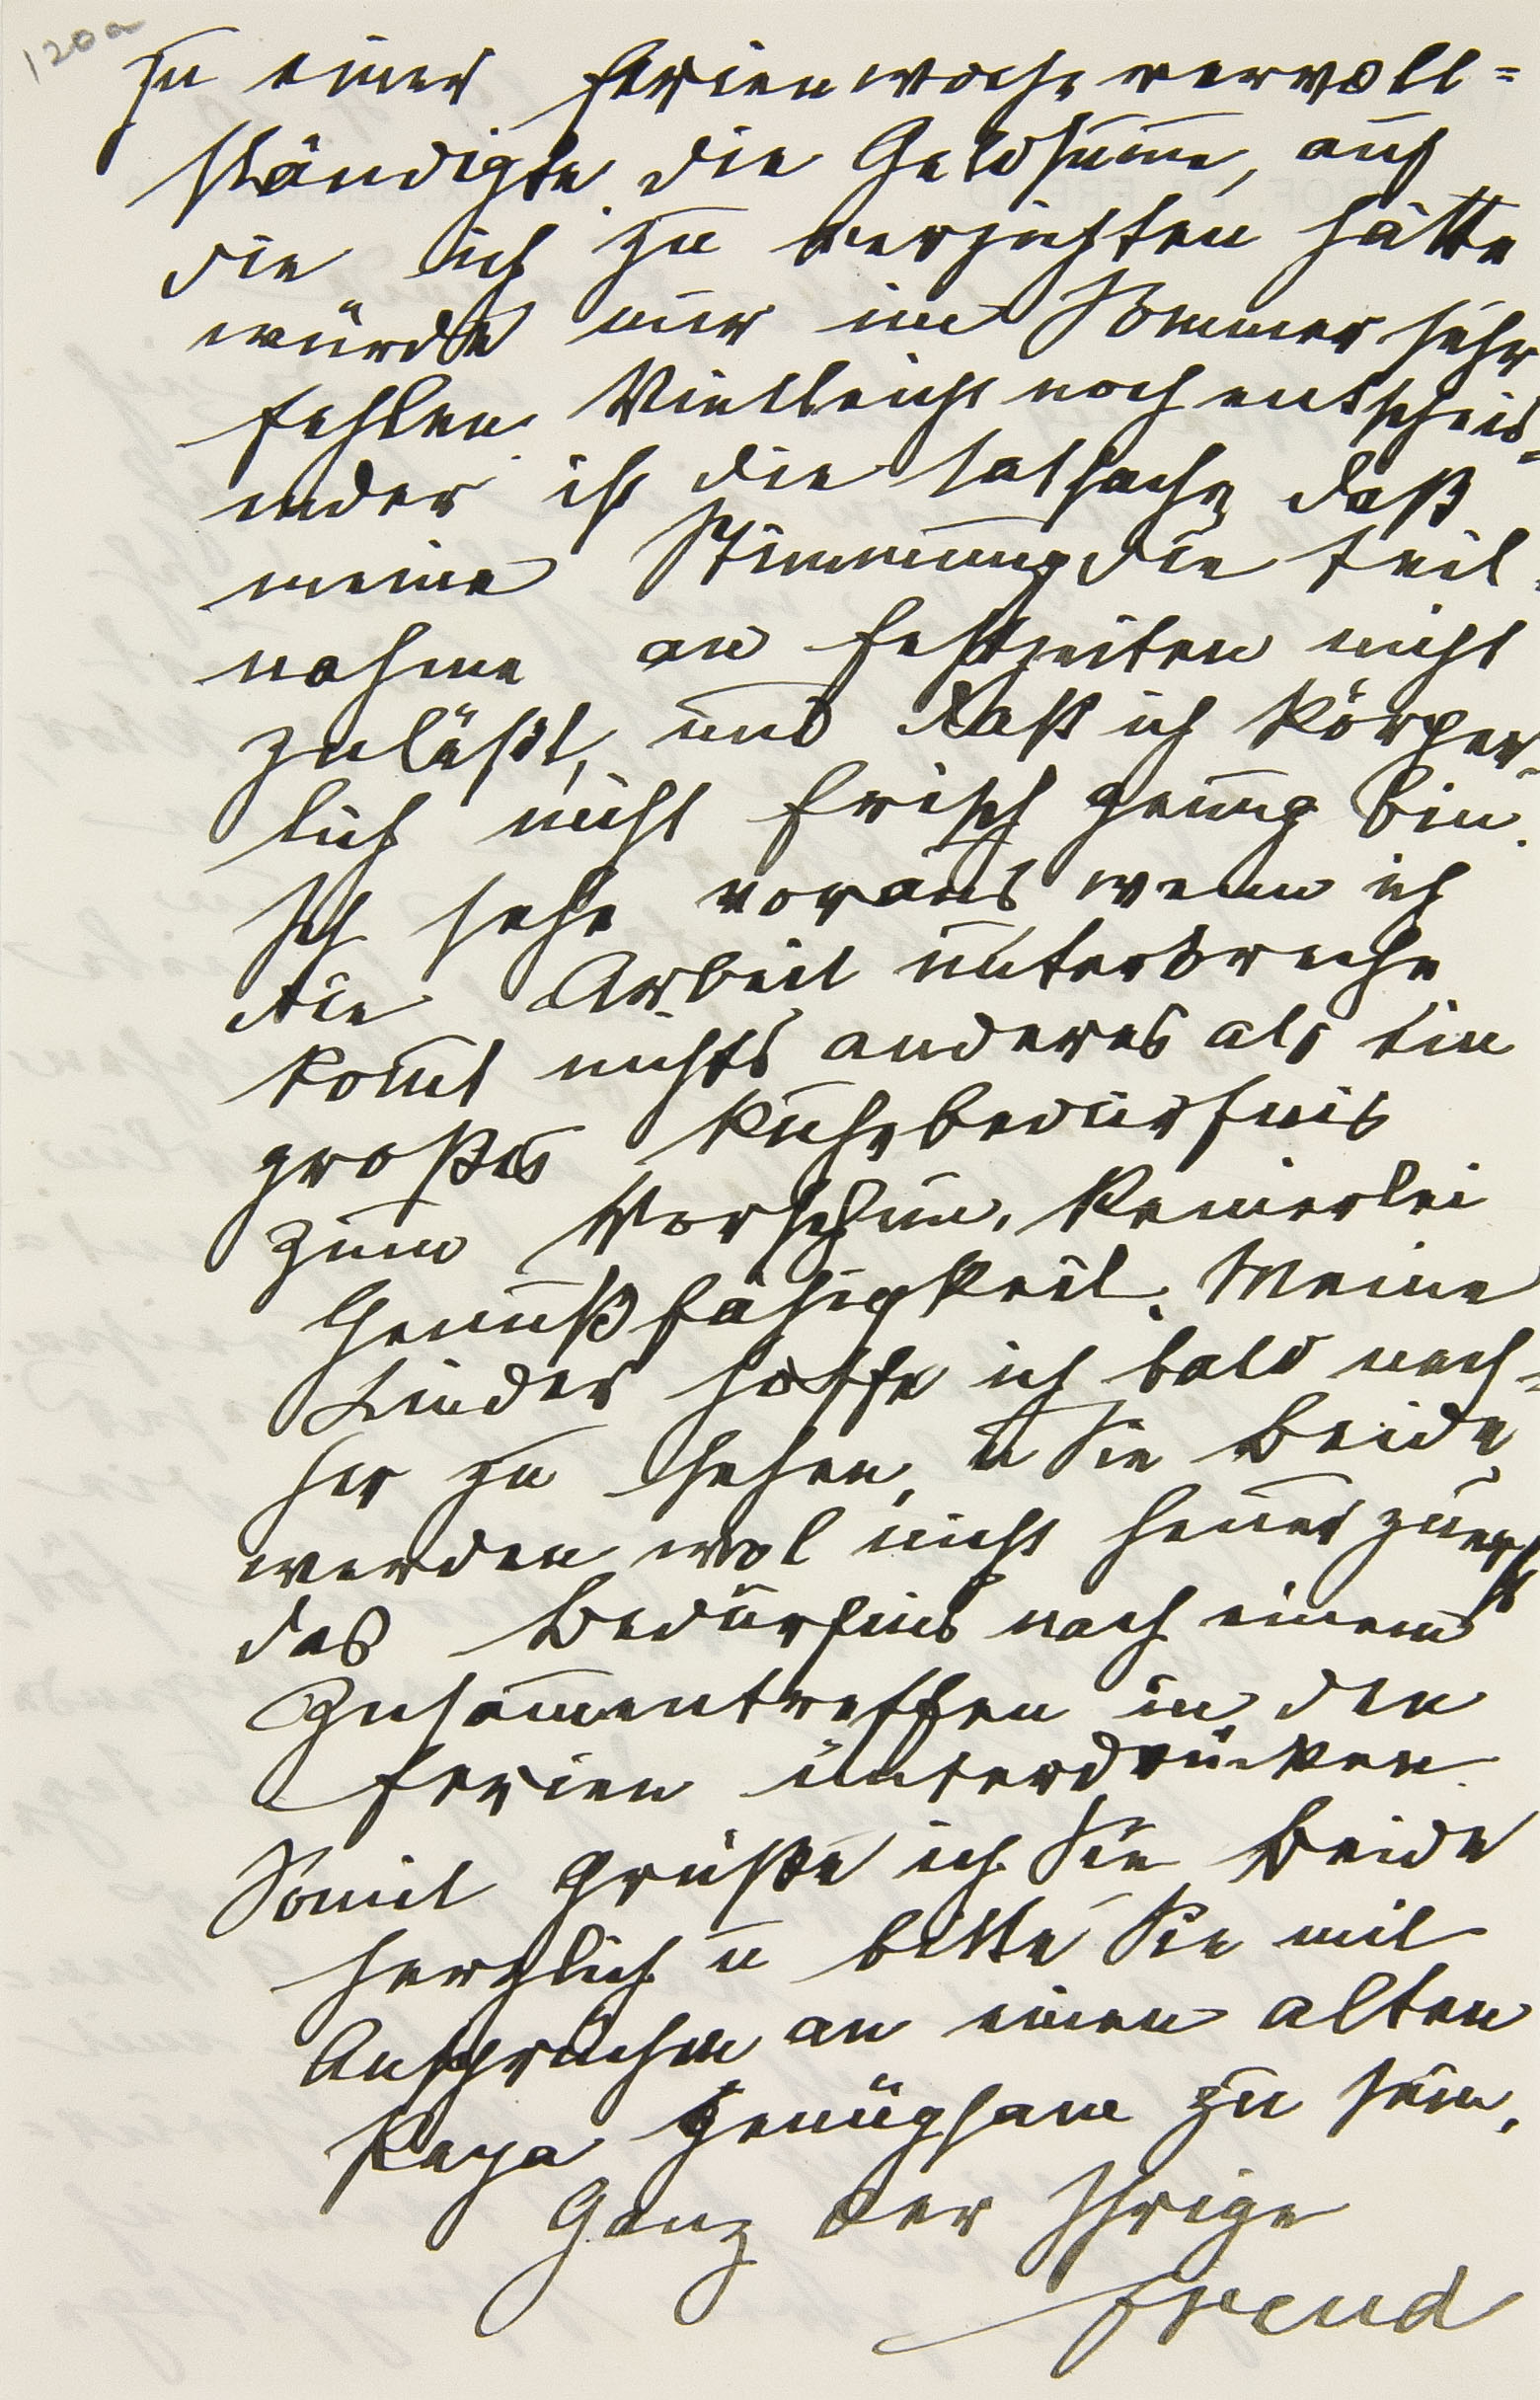 120a
zu einer Ferienwoche vervoll=
ständigte. Die Geldsum̅e, auf
die ich zu verzichten hätte
würde mir im Sommer sehr
fehlen. Vielleicht noch entscheid=
ender ist die Tatsache, daß
meine Stimmung die Teil=
nahme an Festzeiten nicht
zuläßt, und daß ich körper=
lich nicht frisch genug bin.
Ich sehe voraus wenn ich
die Arbeit unterbreche
kom̅t nichts anderes als ein
großes Ruhebedürfnis
zum Vorschein. Keinerlei
Genußfähigkeit. Meine
Kinder hoffe ich bald nach=
her zu sehen, u Sie Beide
werden wol nicht heuer zuerst
das Bedürfnis nach einem
Zusam̅entreffen in den
Ferien unterdrücken.
Somit grüße ich Sie Beide
herzlich u bitte Sie mit
Ansprüchen an einen alten
Papa genügsam zu sein.
Ganz der Ihrige
Freud